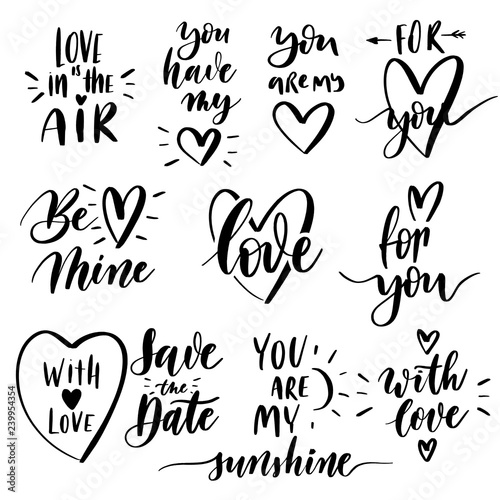 LOVE
in is the
AIR
you
have
my
you
are my
FOR
you
Be
Mine
love
for
you
With
LOVE
Save
the
Date
YOU
ARE
MY
sunshine
with
love
239954354